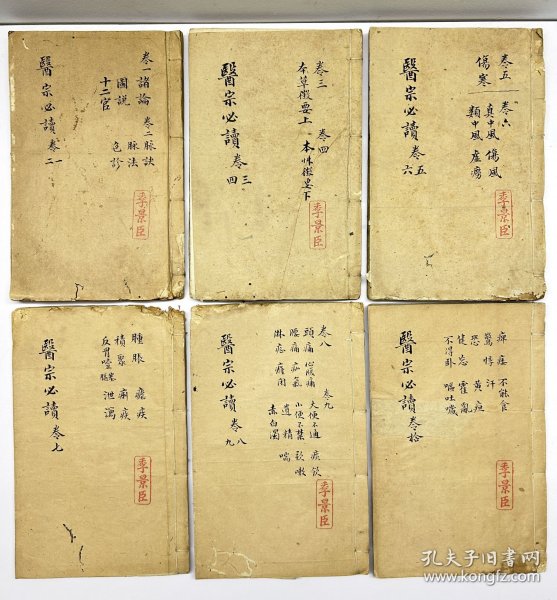 醫宗必讀 卷一
二
卷一 諸論
圖說
十二官
卷二 脉訣
脉法
色診
季景臣
醫宗必讀 卷三
四
卷三
本草徵要上
卷四
本草徵要下
季景臣
醫宗必讀 卷五
六
卷五
傷寒
卷六
真中風 傷風
類中風 虛癆
季景臣
醫宗必讀 卷七
腫脹 瘧疾
積聚 痢疾
反胃噎膈 泄瀉
季景臣
醫宗必讀 卷八
九
卷八
頭痛 心腹痛
腰痛 疝氣
淋症 癃閉
卷九
大便不通 痰飲
小便不禁 欬嗽
遺精 喘
赤白濁
季景臣
醫宗必讀 卷拾
痺 痿 不能食
驚悸 汗
恐 黃疸
健忘 霍亂
不得卧 嘔吐噦
季景臣
孔夫子旧书网
www.kongfz.com